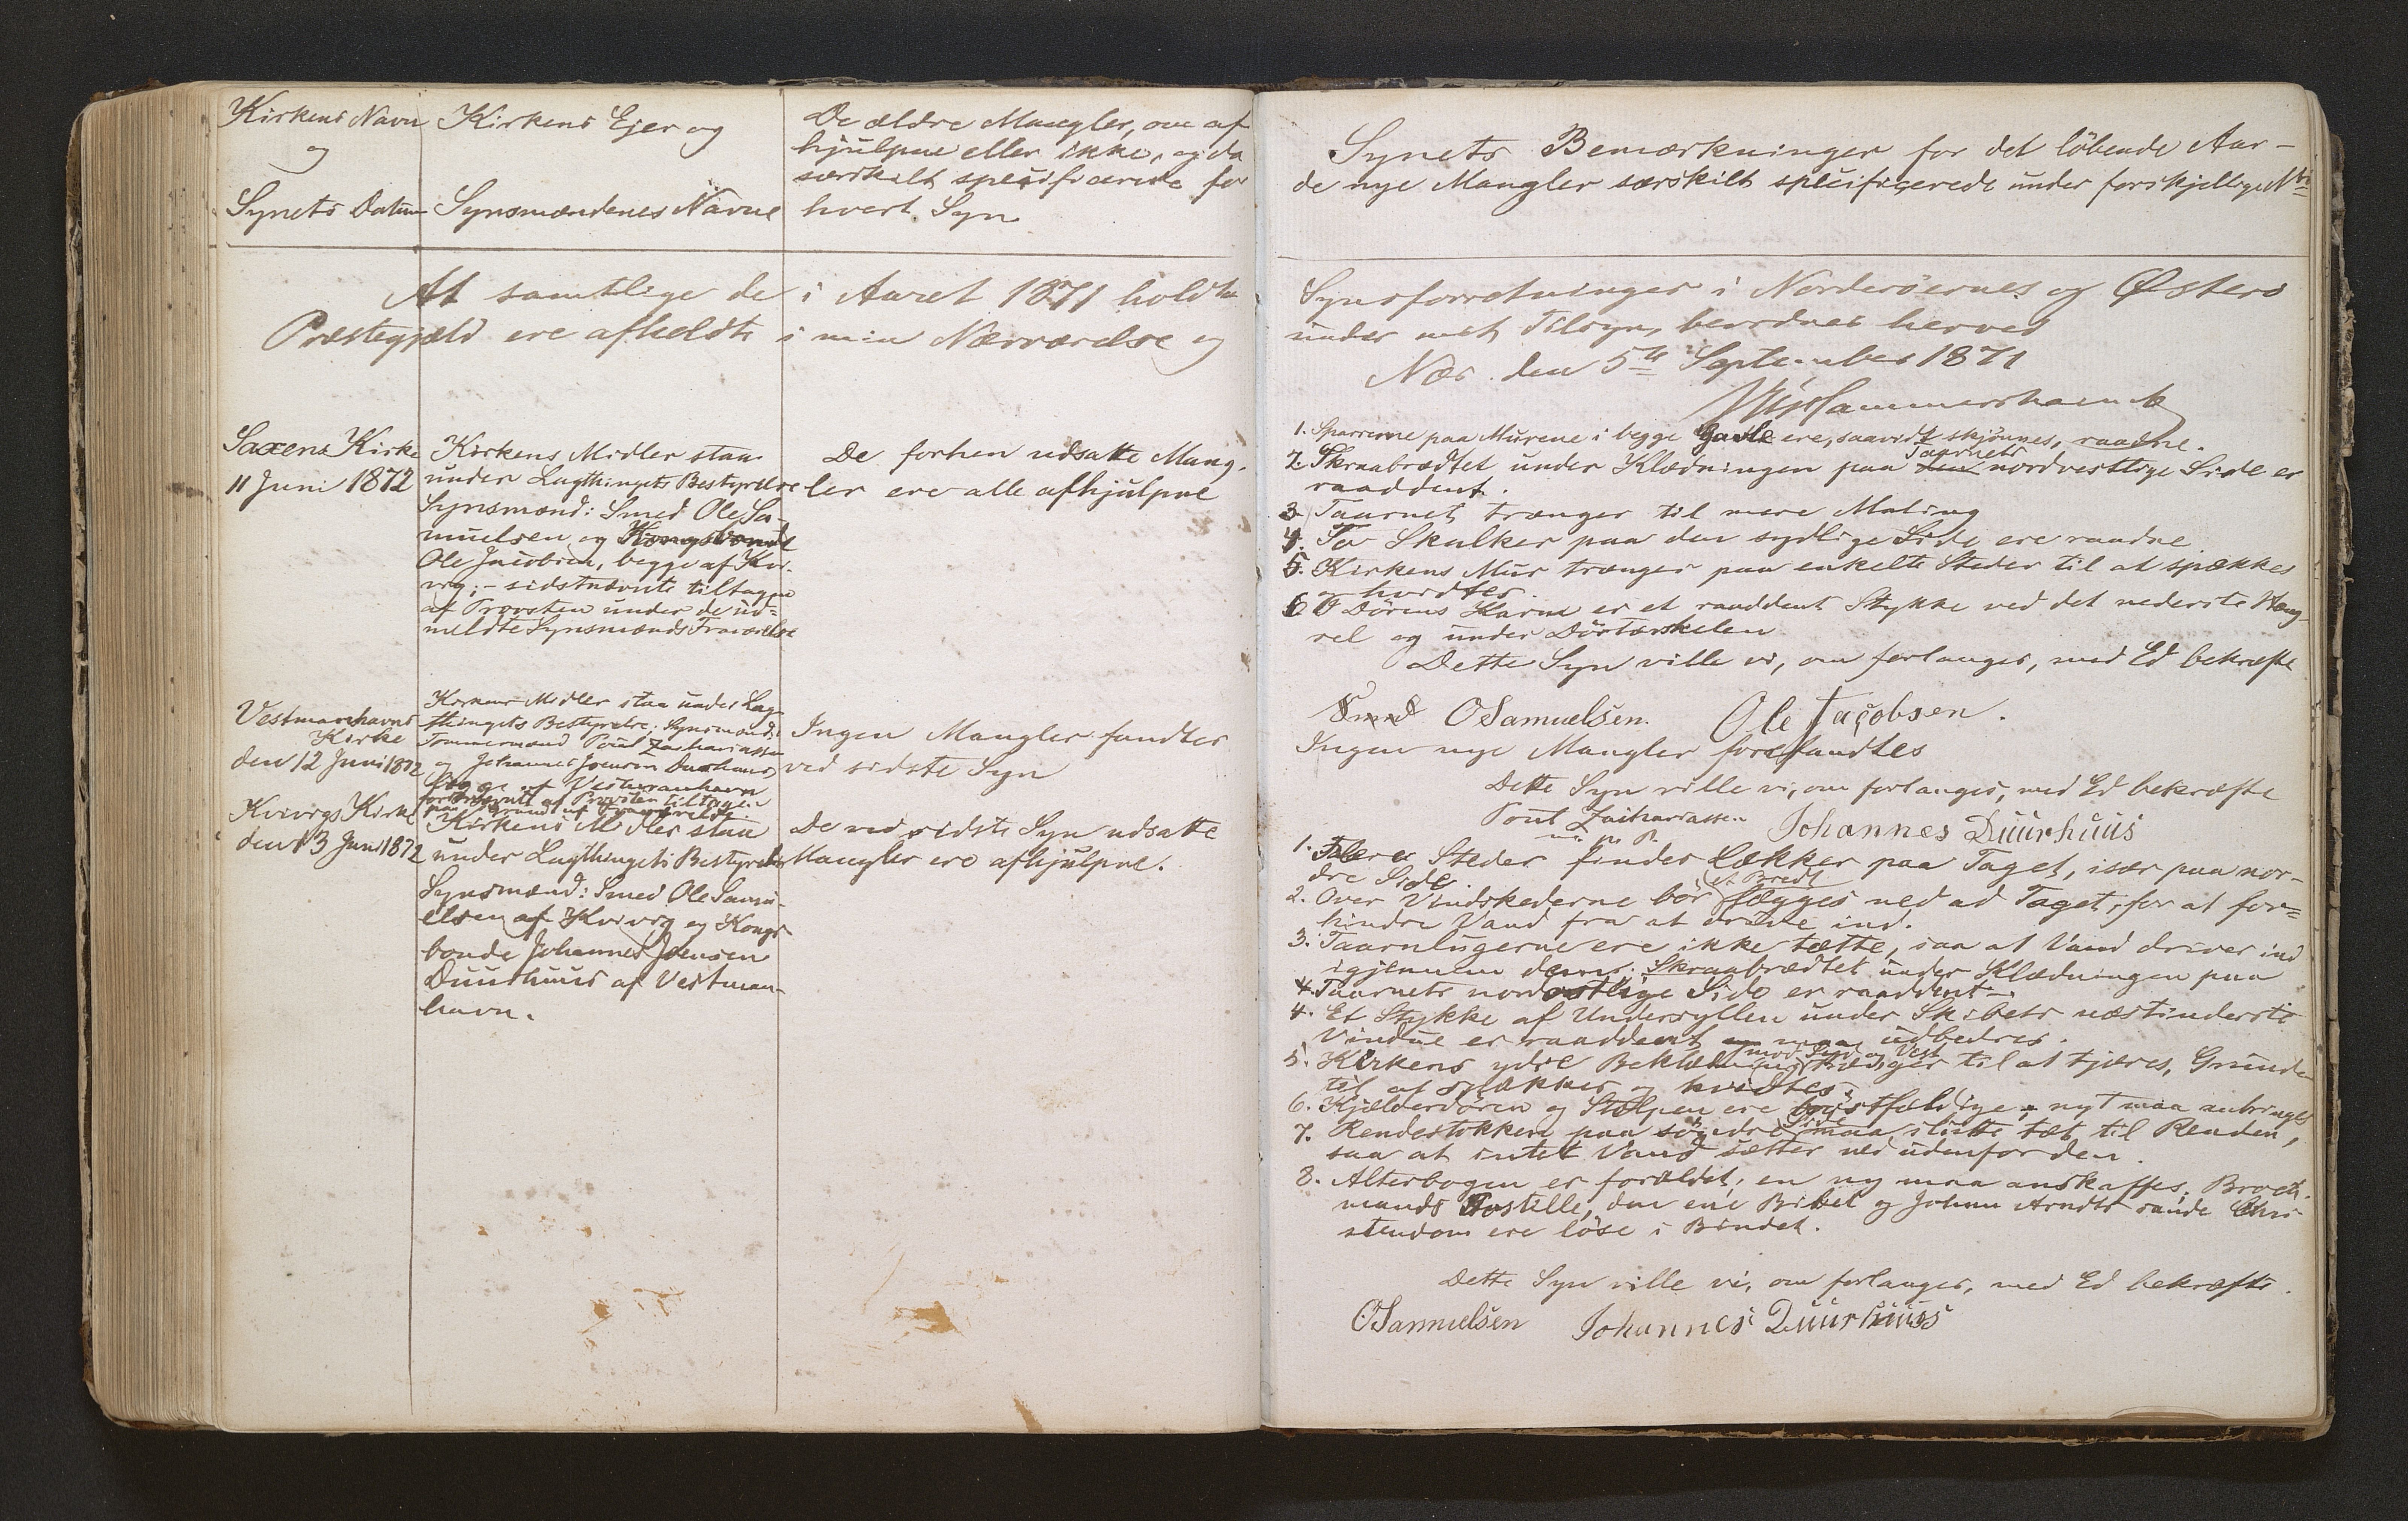 Kirkens Navn
og
Synets Datum
Kirkens Ejer og
Synsmændenes Navne
De ældre Mangler, om af
hjulpne eller ikke, og da
særskilt specificerede for
hvert Syn
Synets Bemærkninger for det löbende Aar –
de nye Mangler særskilt specificerede under forskjellige N
At samtlige de i Aaret 1871 holdte
Præstegjæld ere afholdte i min Nærværelse og
Synsforretninger i Norderöernes og Østerö
under mit Tilsyn, bevidnes herved
Næs den 5te September 1871
Hammershaimb
Saxens Kirke
11 Juni 1872
Kirkens Midler staa
under Lagthingets Bestyrelse
Synsmænd: Smed Ole Sa-
muelsen og Kongsbonde
Ole Jacobsen, begge af Kvi-
vig; – sidstnævnte tiltagen
af Provsten under de ud-
meldte Synsmænds Fraværelse
De forhen udsatte Mang-
ler ere alle afhjulpne
1. Sparrerne paa Murene i begge Gavle ere, saavidt skjönnes, raadne.
2. Skraabrædtet under Klædningen paa Taarnets nordvestlige Side er
raaddent.
3. Taarnet trænger til mere Maling
4. To Skalker paa den sydlige Side ere raadne
5. Kirkens Mur trænger paa enkelte Steder til at spækkes
og hvidtes.
6. I Dörens Karm er et raaddent Stykke ved det nederste Hæng-
sel og under Dörtærskelen
Dette Syn ville vi, om forlanges, med Ed bekræfte
Smed OSamuelsen. Ole Jacobsen.
Vestmanhavns
Kirke
den 12 Juni 1872
Kirkens Midler staa under Lag-
thingets Bestyrelse; Synsmænd:
Tømmermand Poul Zachariassen
og Johannes Joensen Duurhuus,
begge af Vestmanhavn
førstnævnte af Provsten tiltagen
paa Grund af Fraværelse.
Ingen Mangler fandtes
ved sidste Syn
Ingen nye Mangler forefandtes
Dette Syn ville vi, om forlanges, med Ed bekræfte
Poul Zachariassen
m. p. P.
Johannes Duurhuus
Kvivigs Kirke
den 13 Juni 1872
Kirkens Midler staa
under Lagthingets Bestyrelse
Synsmænd: Smed Ole Samu-
elsen af Kvivig og Kongs
bonde Johannes Joensen
Duurhuus af Vestman-
havn.
De ved sidste Syn udsatte
Mangler ere afhjulpne.
1. Flere Steder findes Lækker paa Taget, især paa nor-
dre Side.
2. Over Vindskederne bör et Brædt lægges ned ad Taget, for at for-
hindre Vand fra at drive ind.
3. Taarnlugerne ere ikke tætte, saa at Vand driver ind
igjennem dem. Skraabrædtet under Klædningen paa
4. Taarnets nordostlige Side er raaddent –
4. Et Stykke af Undersyllen under Skibets næstinderste
Vindue er raaddent og maa udbedres.
5. Kirkens ydre Beklædning mod Syd og Vest trænger til at tjæres, Grunden
til at spækkes og hvidtes.
6. Kjælderdören og Stolpen ere bröstfældige – nyt maa anbringes
7. Rendestokken paa söndre Side maa slutte tæt til Renden,
saa at intet Vand sætter ned udenfor den.
8. Alterbogen er forældet, en ny maa anskaffes; Broch-
mands Postille, den ene Bibel og Johan Arndts sande Chri-
stendom ere löse i Bindet.
Dette Syn ville vi, om forlanges, med Ed bekræfte.
OSamuelsen Johannes Duurhuus